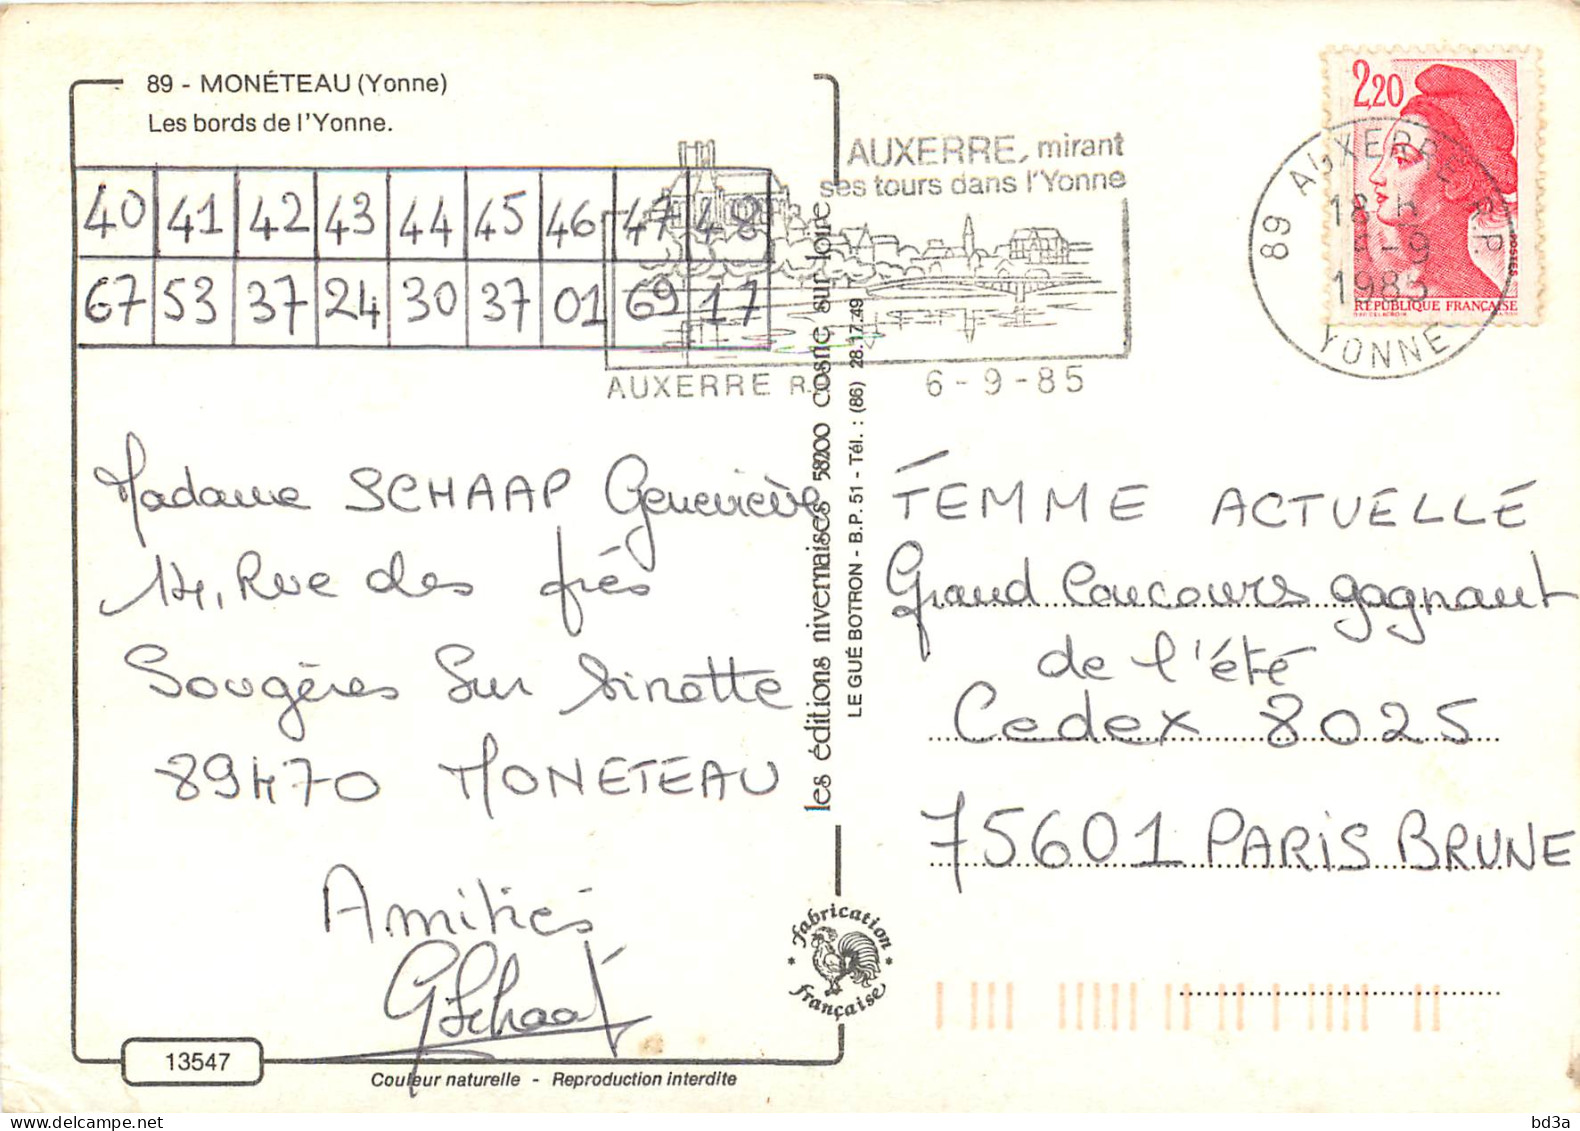 89 - MONÉTEAU (Yonne)
Les bords de l'Yonne.
40 41 42 43 44 45 46 47 48
67 53 37 24 30 37 01 69 17
AUXERRE, mirant
ses tours dans l'Yonne
AUXERRE R.P. 6-9-85
2,20
POSTES
RÉPUBLIQUE FRANÇAISE
89 AUXERRE R.P.
18 H
6-9
1985
YONNE
Madame SCHAAP Geneviève
14, Rue des prés
Sougères Sur Sinotte
89470 MONETEAU
Amitiés
G Schaap
les éditions nivernaises 58200 cosne sur loire
LE GUÉ BOTRON - B.P. 51 - Tél. : (86) 28.17.49
FEMME ACTUELLE
Grand Concours gagnant
de l'été
Cedex 8025
75601 PARIS BRUNE
fabrication
française
13547
Couleur naturelle - Reproduction interdite
bd3a